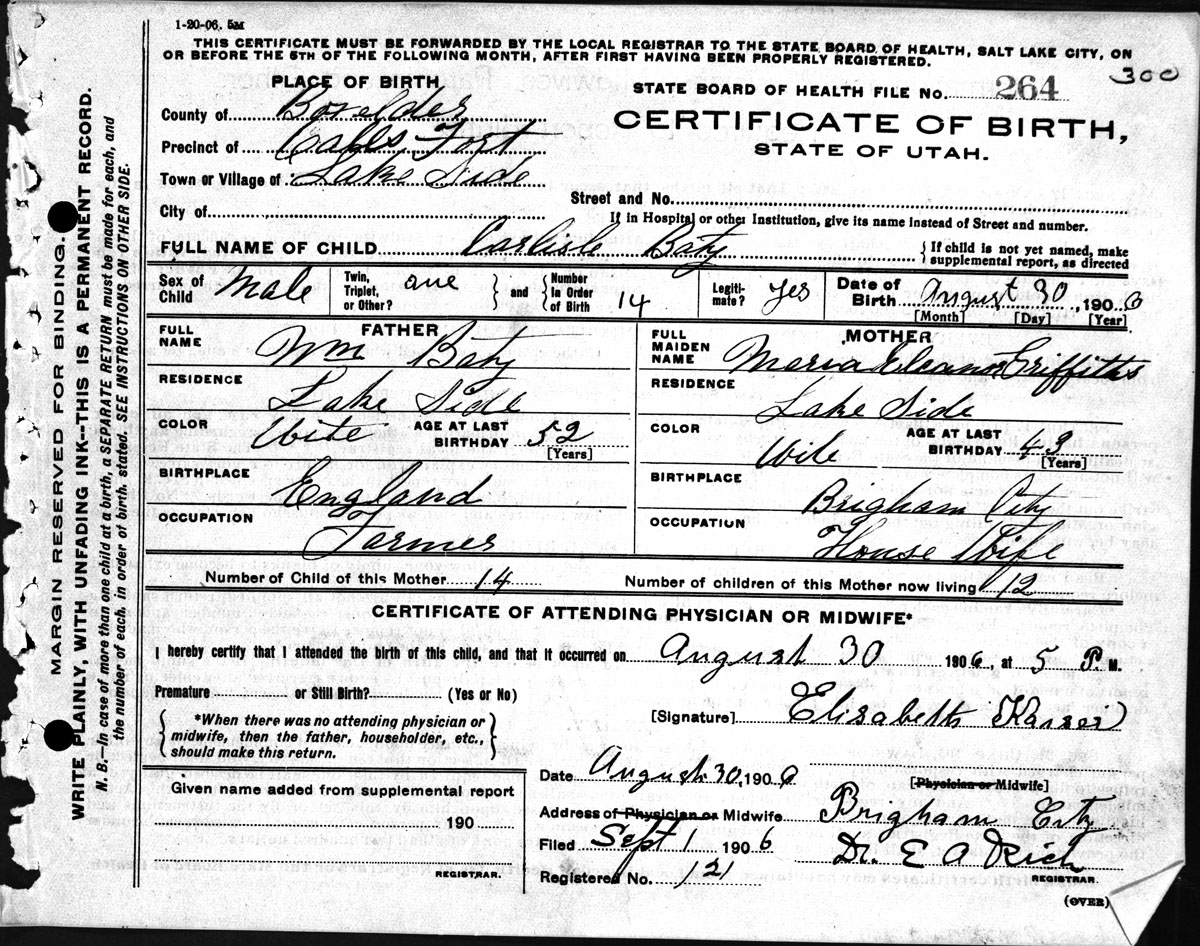 1-20-06. 5M
THIS CERTIFICATE MUST BE FORWARDED BY THE LOCAL REGISTRAR TO THE STATE BOARD OF HEALTH, SALT LAKE CITY, ON
OR BEFORE THE 5TH OF THE FOLLOWING MONTH, AFTER FIRST HAVING BEEN PROPERLY REGISTERED.
300
PLACE OF BIRTH
STATE BOARD OF HEALTH FILE No. 264
County of Boxelder
CERTIFICATE OF BIRTH,
STATE OF UTAH.
Precinct of Calls Fort
Town or Village of Lake Side
Street and No.
City of
If in Hospital or other Institution, give its name instead of Street and number.
FULL NAME OF CHILD Carlisle Baty
{ If child is not yet named, make
supplemental report, as directed
Sex of Child Male
Twin, Triplet, or Other? one } and { Number In Order of Birth 14
Legiti-mate? Yes
Date of Birth August 30, 1906
[Month] [Day] [Year]
FATHER
FULL NAME Wm Baty
RESIDENCE Lake Side
COLOR Wite
AGE AT LAST BIRTHDAY 52
[Years]
BIRTHPLACE England
OCCUPATION Farmer
MOTHER
FULL MAIDEN NAME Marva Eleanor Griffiths
RESIDENCE Lake Side
COLOR Wite
AGE AT LAST BIRTHDAY 43
[Years]
BIRTHPLACE Brigham City
OCCUPATION House Wife
Number of Child of this Mother 14
Number of children of this Mother now living 12
CERTIFICATE OF ATTENDING PHYSICIAN OR MIDWIFE*
I hereby certify that I attended the birth of this child, and that it occurred on August 30 1906, at 5 P. M.
Premature or Still Birth? (Yes or No)
{ *When there was no attending physician or
midwife, then the father, householder, etc.,
should make this return. }
[Signature] Elisabeth
Date August 30, 1906
[Physician or Midwife]
Address of Physician or Midwife Brigham City
Filed Sept 1 1906
Dr. E A Rich
REGISTRAR.
Registered No. 121
(OVER)
Given name added from supplemental report
190
REGISTRAR.
MARGIN RESERVED FOR BINDING.
WRITE PLAINLY, WITH UNFADING INK--THIS IS A PERMANENT RECORD.
N. B.—In case of more than one child at a birth, a SEPARATE RETURN must be made for each, and
the number of each, in order of birth, stated. SEE INSTRUCTIONS ON OTHER SIDE.